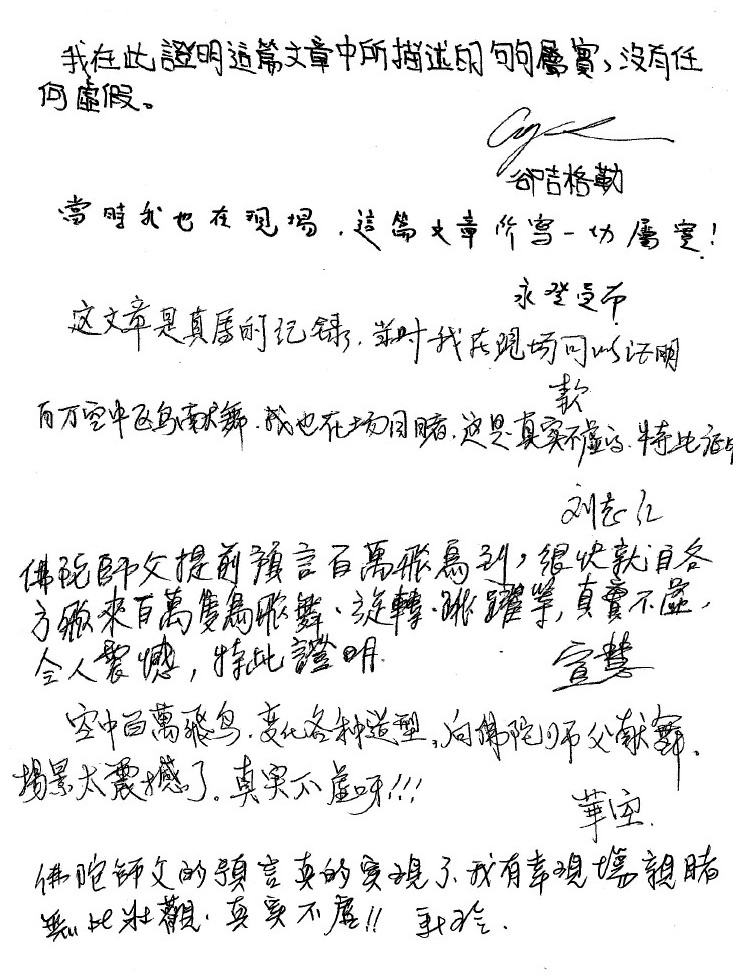 我在此證明這篇文章中所描述的句句屬實，沒有任
何虛假。
卻吉格勒
當時我也在現場，這篇文章所寫一切屬實！
永登
这文章是真居的纪録，当时我在现场可以证明
百万空中飞鸟献舞，我也在场目睹，这是真实不虚的，特此证明
刘志仁
佛陀師父提前預言百萬飛鳥到，很快就自各
方飛來百萬隻鳥飛舞、旋轉、跳躍等，真實不虛，
令人震憾，特此證明
宣慧
空中百萬飛鸟，变化各种造型，向佛陀师父献舞，
場景太震撼了。真实不虚呀!!!
華
佛陀師父的預言真的实現了，我有幸現場親睹
無比壯觀，真实不虛!!